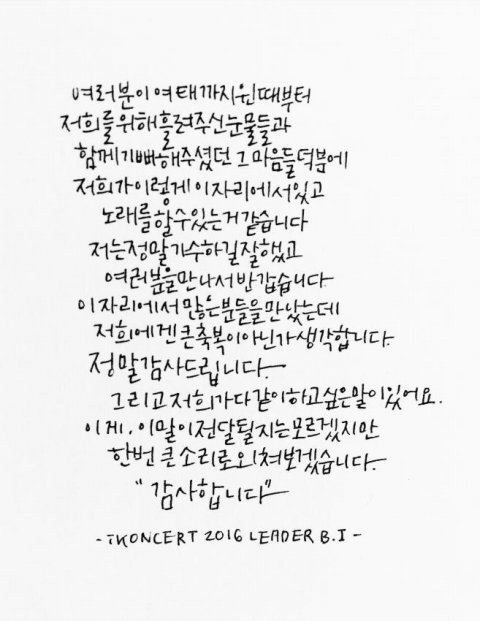 여러분이 여태까지 윈때부터
저희를 위해 흘려주신 눈물들과
함께 기뻐해주셨던 그 마음들 덕분에
저희가 이렇게 이 자리에 서있고
노래를 할 수 있는 거 같습니다
저는 정말 가수하길 잘했고
여러분을 만나서 반갑습니다
이 자리에서 많은 분들을 만났는데
저희에겐 큰 축복이 아닌가 생각합니다.
정말 감사드립니다.
그리고 저희가 다 같이 하고 싶은 말이 있어요.
이게, 이 말이 전달될지는 모르겠지만
한번 큰 소리로 외쳐보겠습니다.
"감사합니다"
- iKONCERT 2016 LEADER B.I -